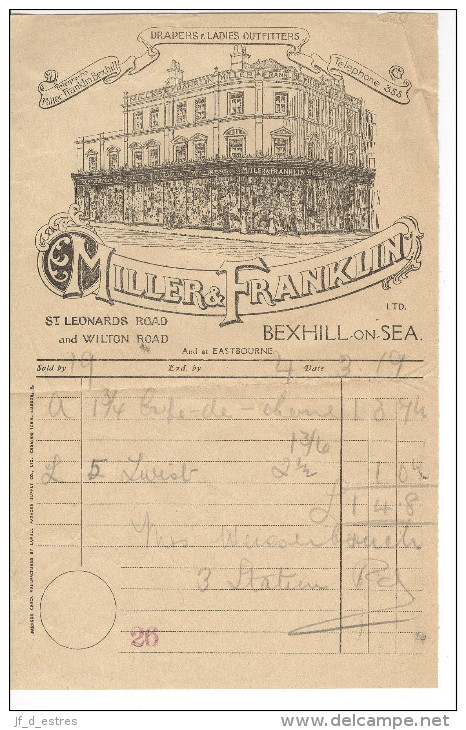 DRAPERS & LADIES OUTFITTERS
Telegrams
Miller Franklin Bexhill
Telephone 355
MILLER & FRANKLIN
MILLER & FRANKLIN
MILLER & FRANKLIN
LTD.
ST LEONARDS ROAD
and WILTON ROAD
BEXHILL-ON-SEA.
And at EASTBOURNE
Sold by 19 Exd. by 4 Date 3 19
A 1¾ Crepe-de-chene 1 3 7½
13/6
L 5 Twist 2½ 1 0½
£ 1 4 8
Mrs
3 Station Rd
26
jf_d_estres
delcampe.net